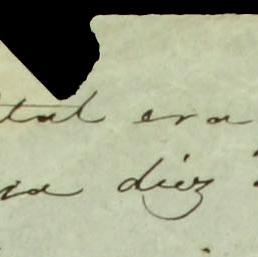 tal era
sa diez